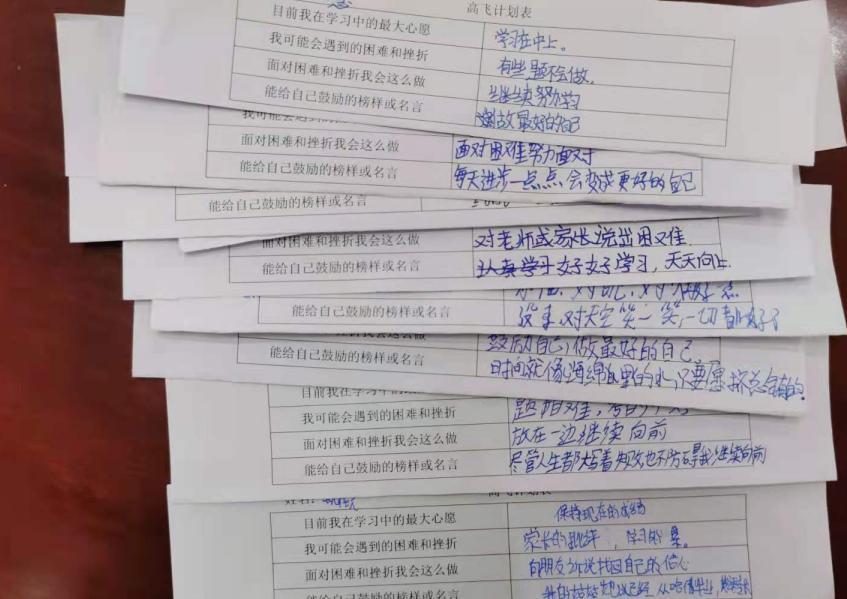 高飞计划表
目前我在学习中的最大心愿 学习在中上。
我可能会遇到的困难和挫折 有些题不会做。
面对困难和挫折我会这么做 继续努力
能给自己鼓励的榜样或名言 做最好的自己
我可能会遇到的困难和挫折
面对困难和挫折我会这么做 面对困难努力面对
能给自己鼓励的榜样或名言 每天进步一点点,会变成更好的自己
能给自己鼓励的榜样或名言
面对困难和挫折我会这么做 对老师或家长说出困难
能给自己鼓励的榜样或名言 好好学习,天天向上.
能给自己鼓励的榜样或名言 没事,对天空笑一笑,一切都好了
挫折我会这么做 鼓励自己,做最好的自己。
能给自己鼓励的榜样或名言 时间就像海绵里的水,只要愿挤总会有的.
目前我在学习中的最大心愿
我可能会遇到的困难和挫折 题
面对困难和挫折我会这么做 放在一边继续向前
能给自己鼓励的榜样或名言 尽管人生都写着失败也不妨碍我继续向前
高飞计划表
目前我在学习中的最大心愿 保持现在的成绩
我可能会遇到的困难和挫折 家长的批评、学习的累。
面对困难和挫折我会这么做 向朋友诉说找回自己的信心
能给自己鼓励的榜样或名言 我的姑姑